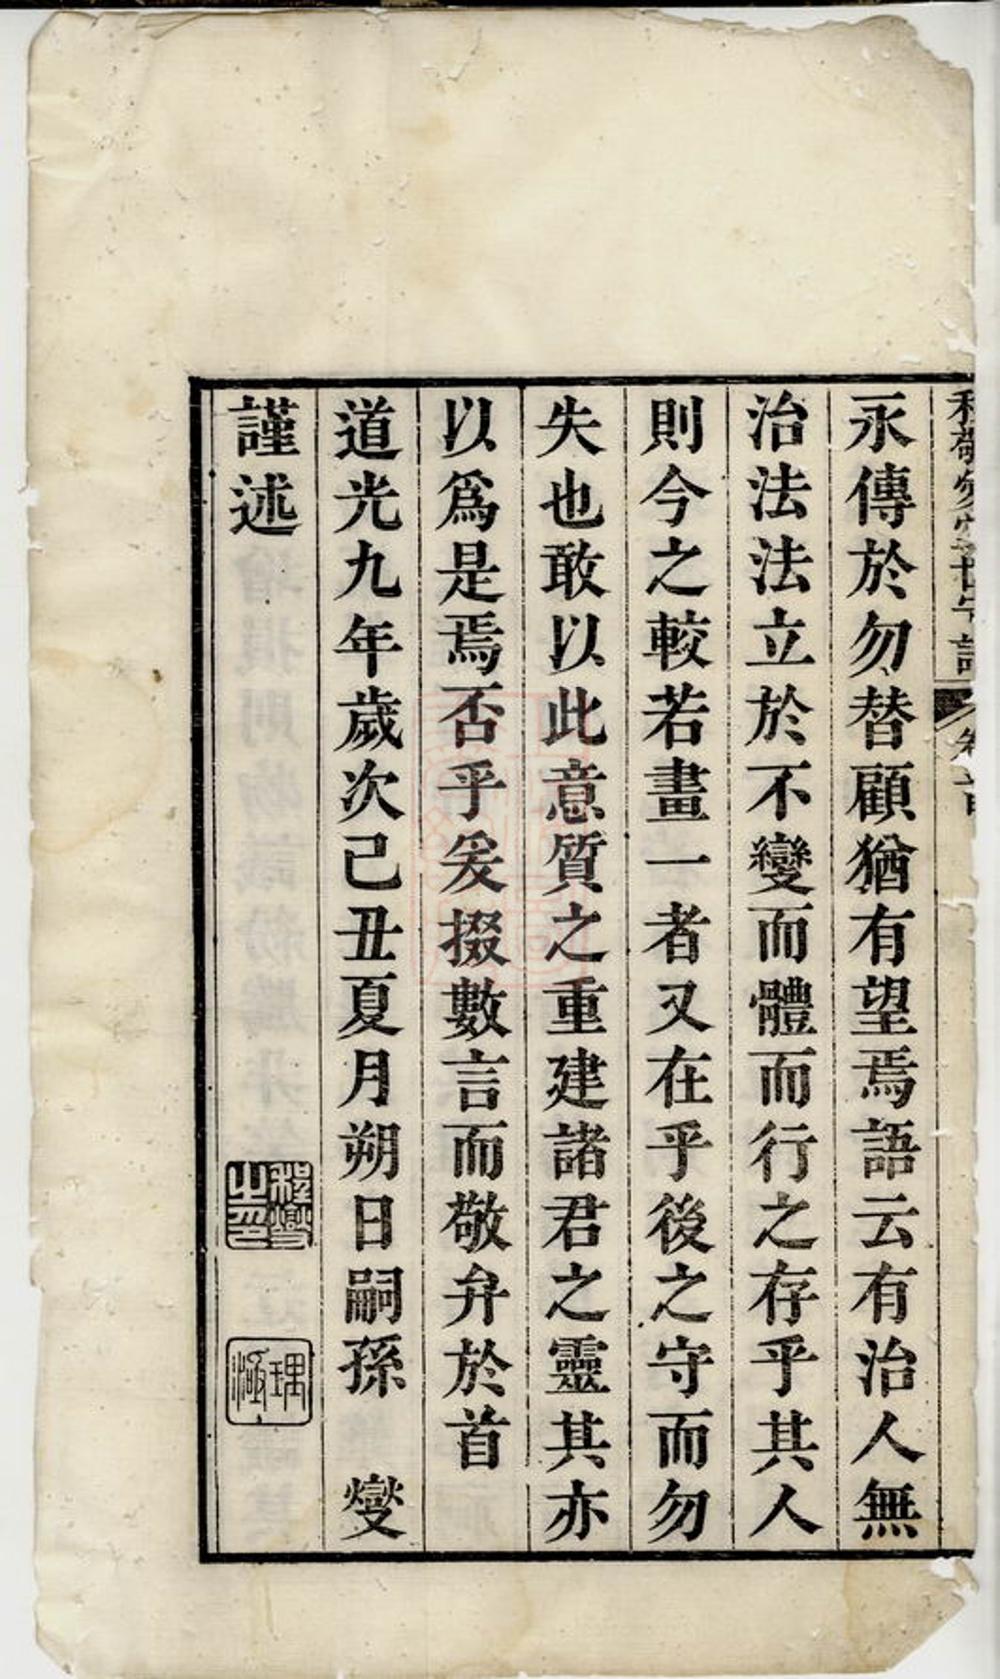 永傳於勿替顧猶有望焉語云有治人無
治法法立於不變而體而行之存乎其人
則今之較若畫一者又在乎後之守而勿
失也敢以此意質之重建諸君之靈其亦
以爲是焉否乎爰掇數言而敬弁於首
道光九年歲次己丑夏月朔日嗣孫 燮
謹述
程燮之印